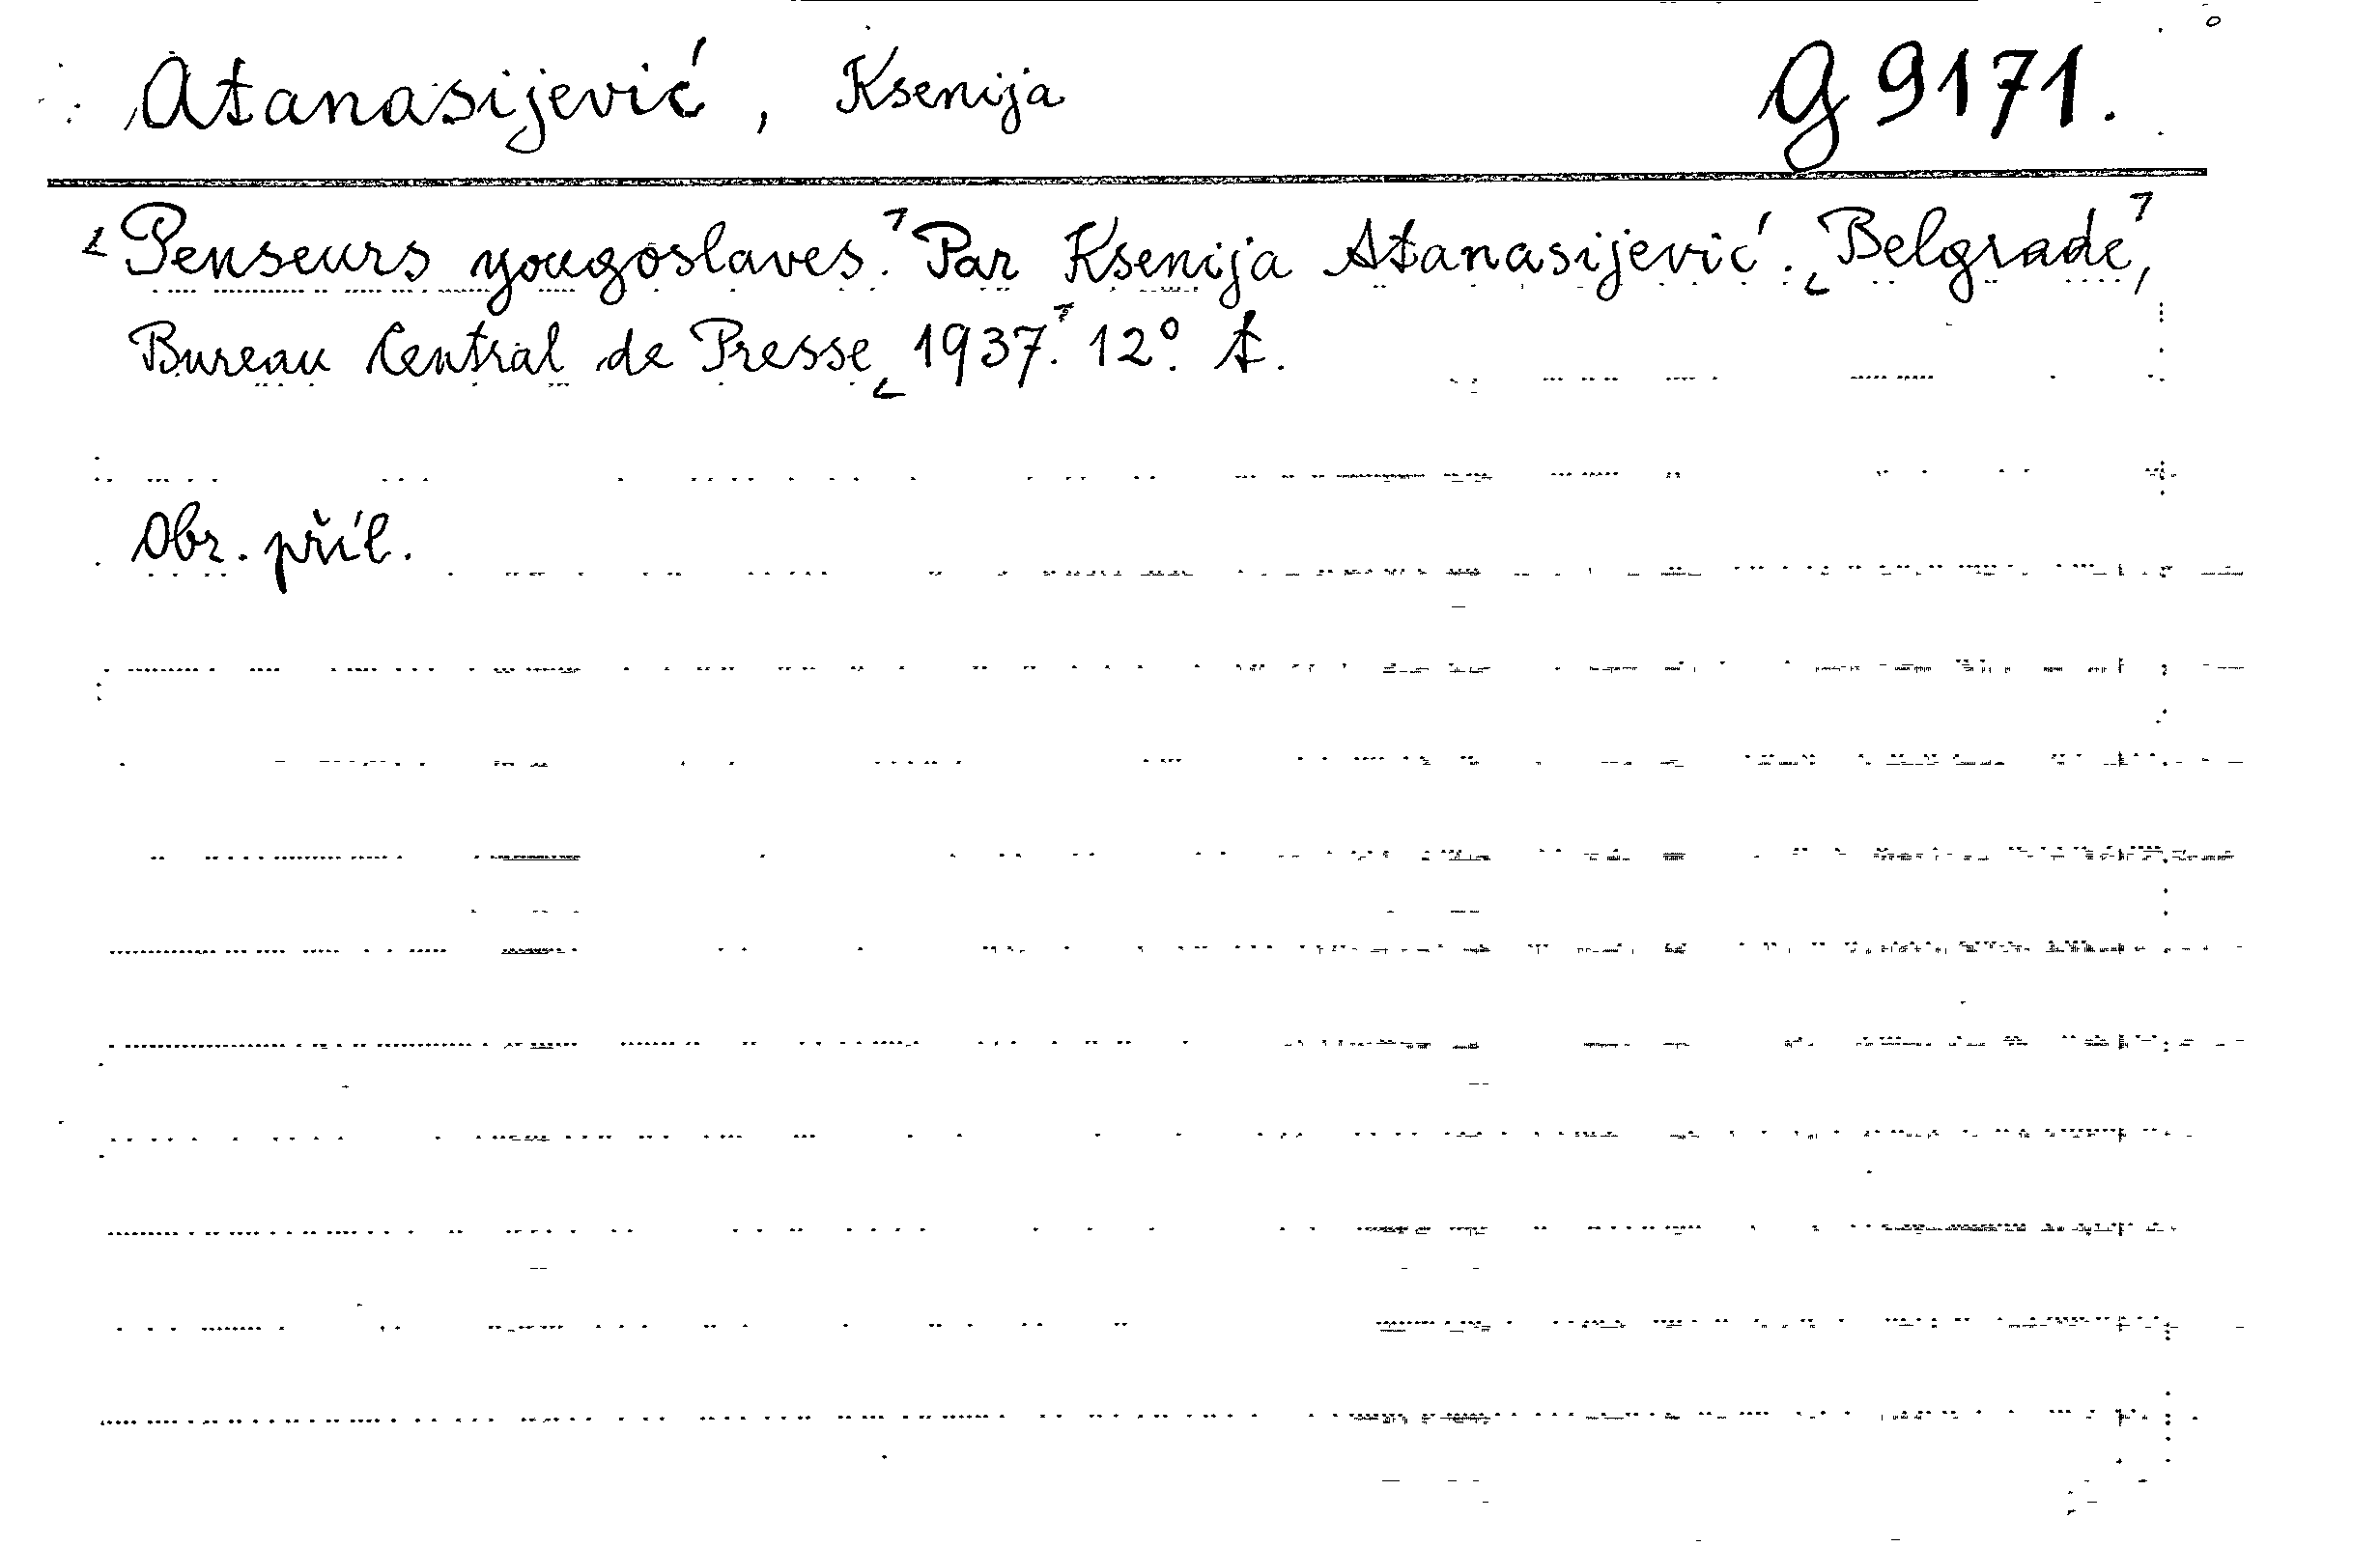 Atanasijević, Ksenija G 9171.
Penseurs yougoslaves. Par Ksenija Atanasijević. Belgrade,
Bureau Central de Presse 1937. 12°. A.
Obr. příl.